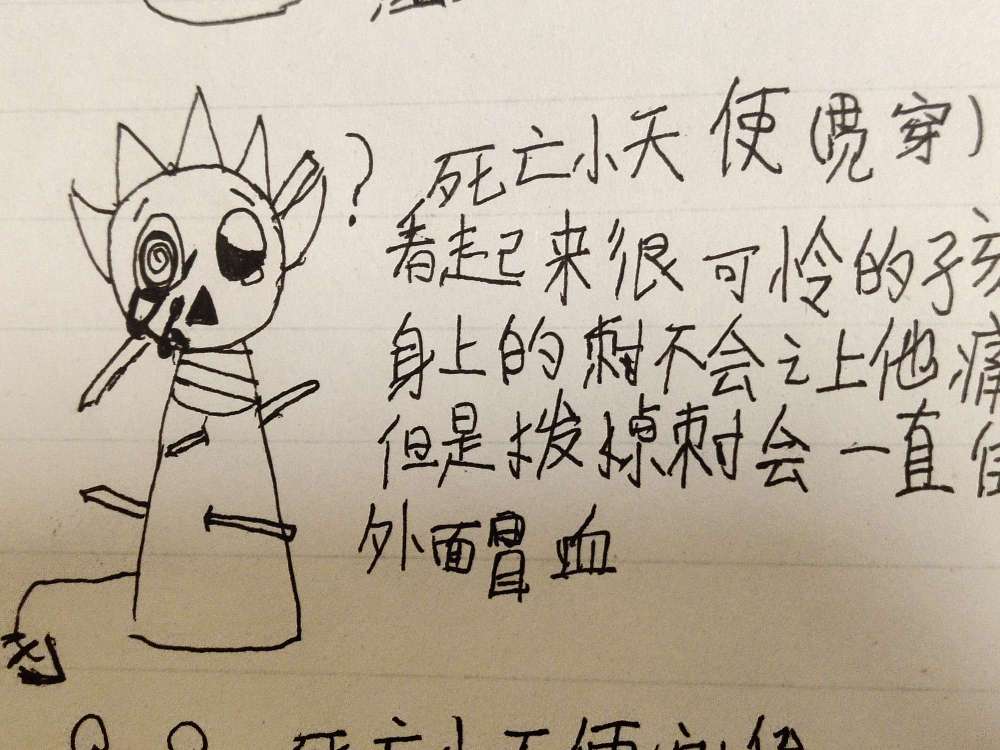 ? 死亡小天使(贯穿)
看起来很可怜的孩
身上的刺不会让他痛
但是拨掉刺会一直往
外面冒血
死亡小天使